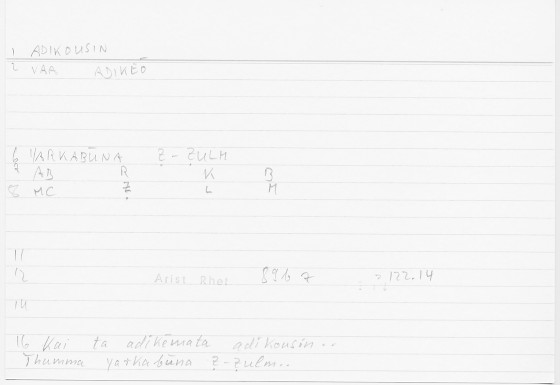 1 ADIKOUSIN
2 VAA ADIKEŌ
6 YARKABŪNA Ẓ-ẒULM
7 AB R K B
8 MC Ẓ L M
11
12 Arist Rhet 89b 7 = 122.14
14
16 Kai ta adikēmata adikousin..
Thumma yarkabūna Ẓ-ẓulm..